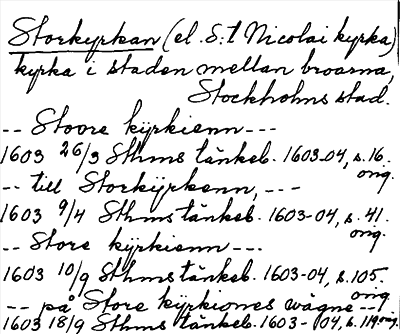 Storkyrkan (el. S:t Nicolai kyrka)
kyrka i staden mellan broarna,
Stockholms stad.
-- Stoore kÿrkienn ---
1603 26/3 Sthms tänkeb. 1603-04, s. 16.
orig.
-- till Storkÿrkenn, ---
1603 9/4 Sthms tänkeb. 1603-04, s. 41.
orig.
-- Store kÿrkienn ---
1603 10/9 Sthms tänkeb. 1603-04, s. 105.
orig.
-- på Store kÿrkiones wägne --
1603 18/9 Sthms tänkeb. 1603-04, s. 119 orig.